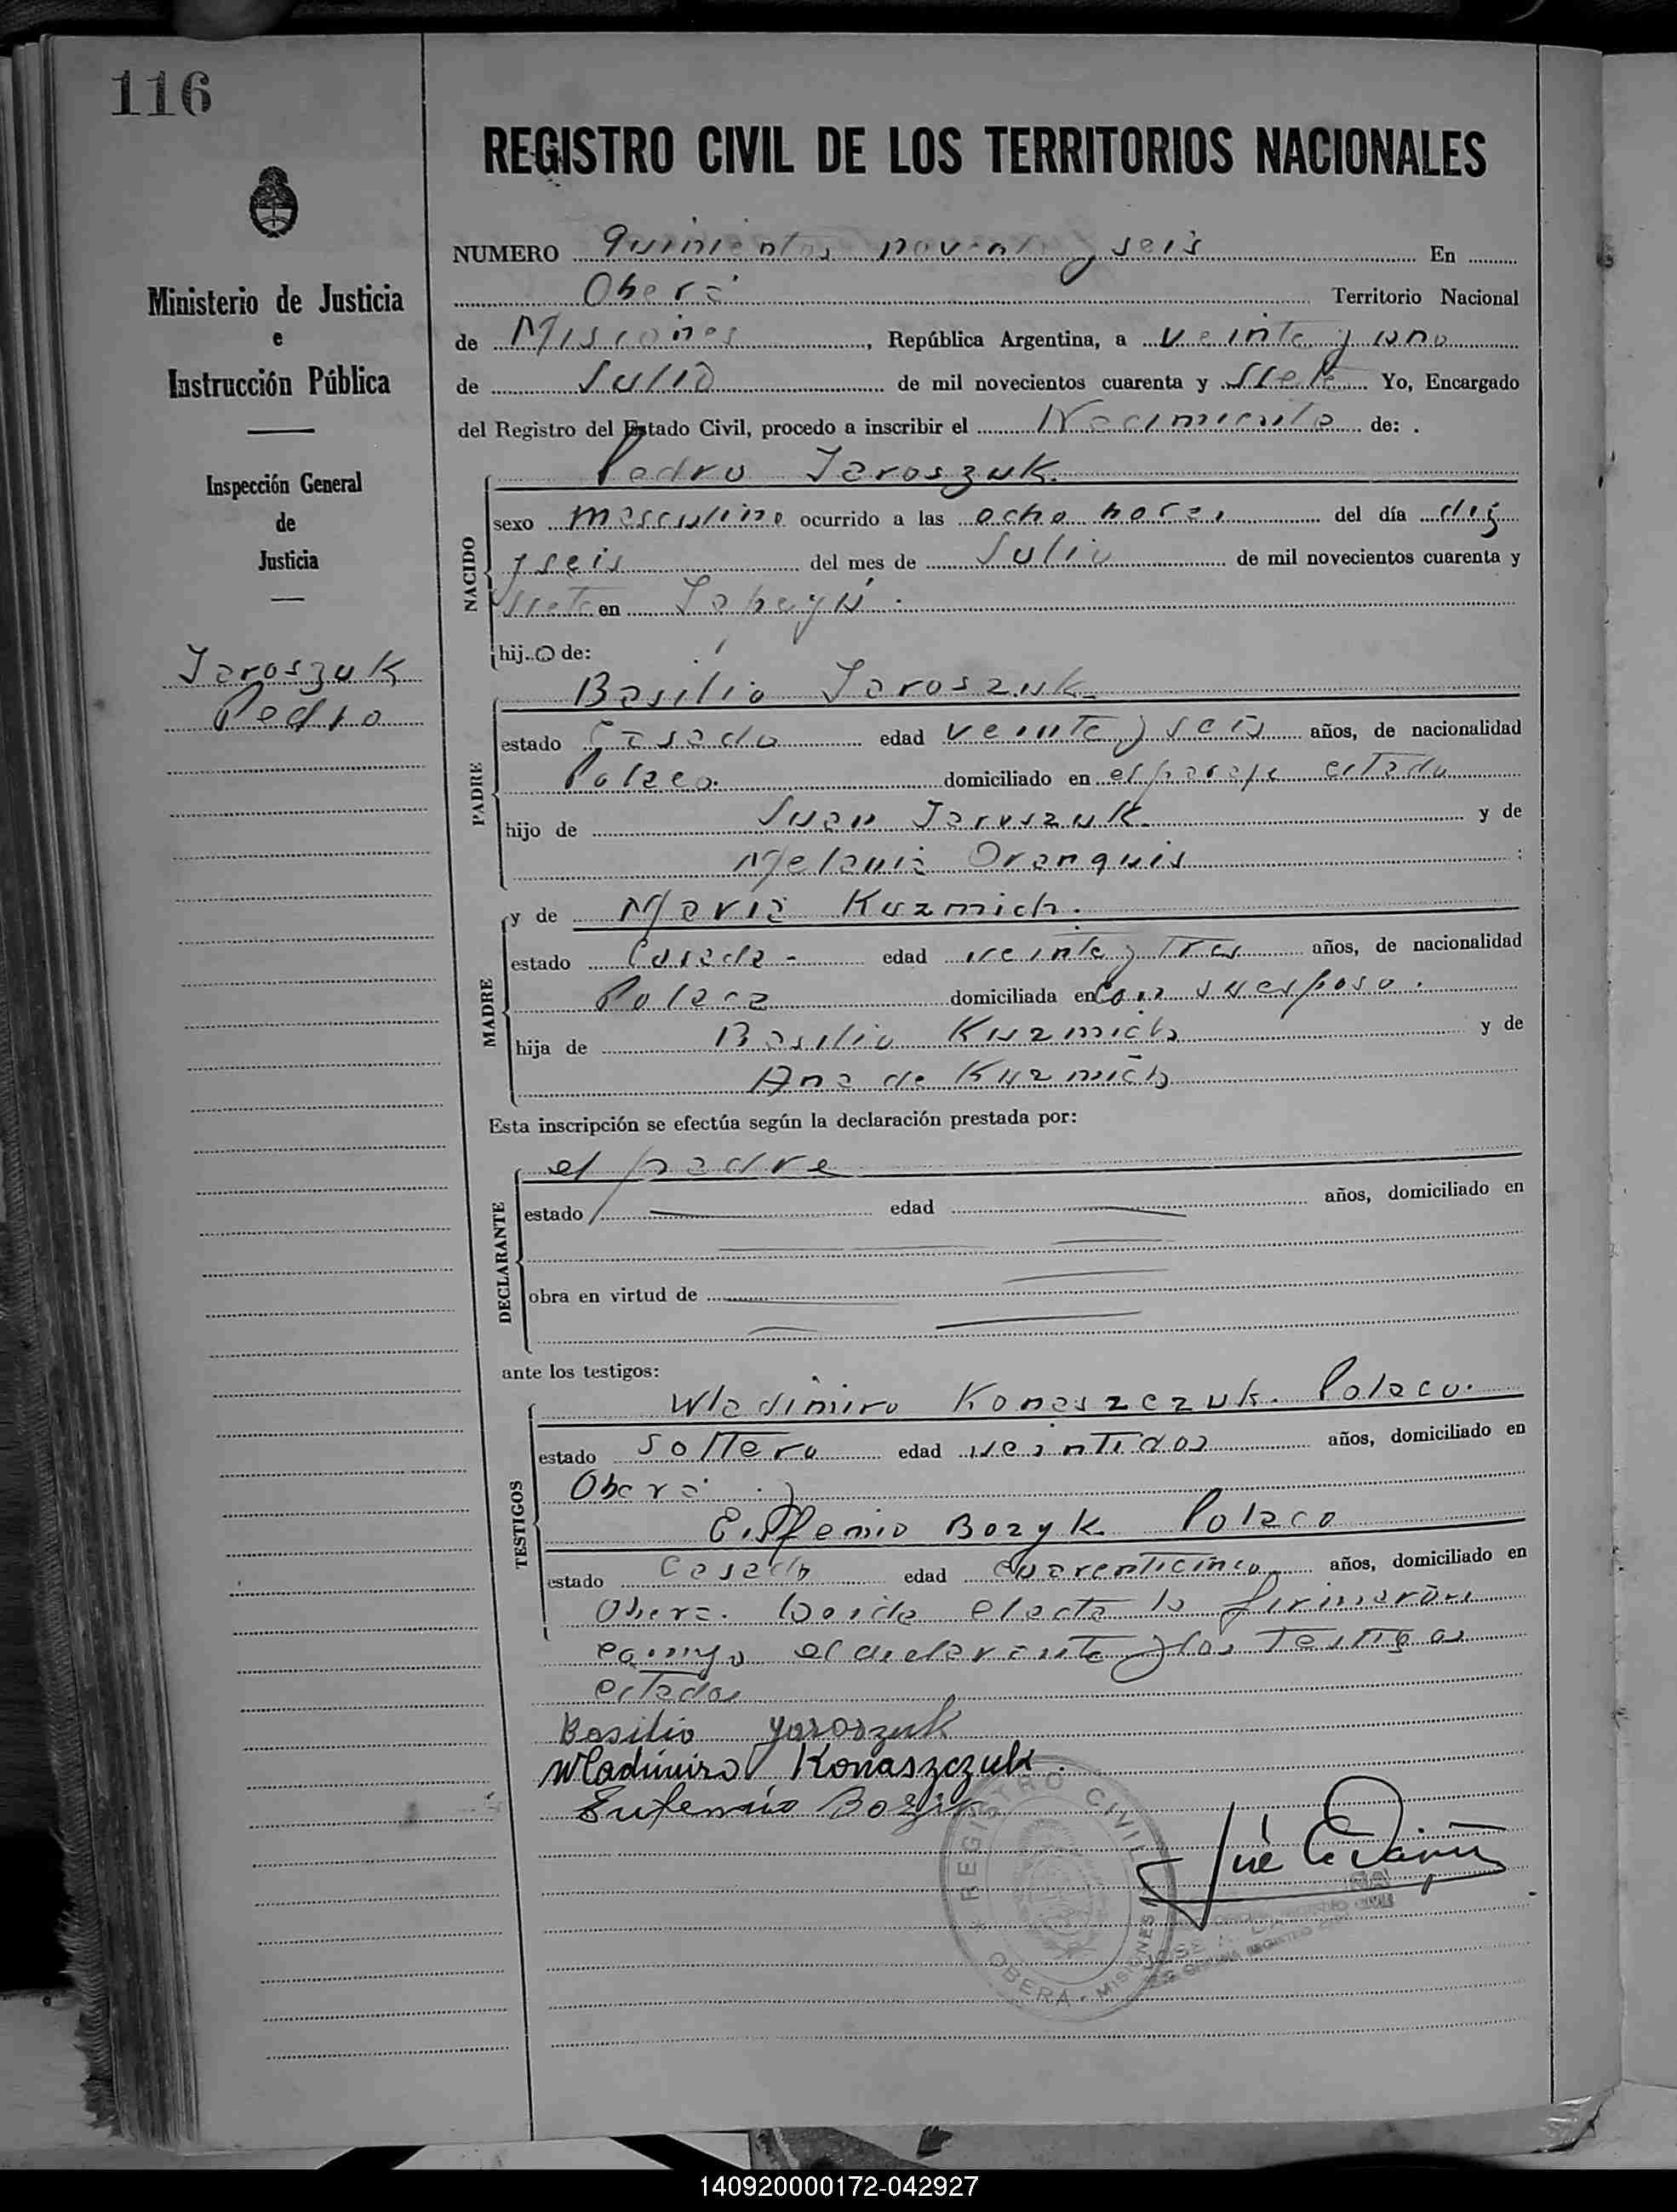 116
REGISTRO CIVIL DE LOS TERRITORIOS NACIONALES
Ministerio de Justicia
e
Instrucción Pública
Inspección General
de
Justicia
Jaroszuk
Pedro
NUMERO quinientos noventa y seis En
Oberá Territorio Nacional
de Misiones, República Argentina, a veinte y uno
de Julio de mil novecientos cuarenta y siete Yo, Encargado
del Registro del Estado Civil, procedo a inscribir el Nacimiento de:
NACIDO
Pedro Jaroszuk.
sexo masculino ocurrido a las ocho horas del día diez
y seis del mes de Julio de mil novecientos cuarenta y
siete en
hijo de:
PADRE
Basilio Jaroszuk
estado Casado edad veinte y seis años, de nacionalidad
Polaco. domiciliado en el paraje citado
hijo de Juan Jaroszuk y de
Melania Oranquis
MADRE
y de Maria Kuzmich.
estado Casada edad veinte y tres años, de nacionalidad
Polaca domiciliada en Con su esposo.
hija de Basilio Kuzmich y de
Ana de Kuzmich
Esta inscripción se efectúa según la declaración prestada por:
DECLARANTE
el padre
estado edad años, domiciliado en
obra en virtud de
ante los testigos:
TESTIGOS
Wladimiro Konaszczuk. Polaco.
estado soltero edad veintidos años, domiciliado en
Oberá y
Eufemio Bozyk Polaco
estado Casado edad cuarenticinco años, domiciliado en
Oberá. Leida el acta la firmaron
conmigo el declarante y los testigos
citados
Basilio Yaroszuk
Wladimiro Konaszczuk.
Eufemio
REGISTRO CIVIL
OBERA - MISIONES
140920000172-042927